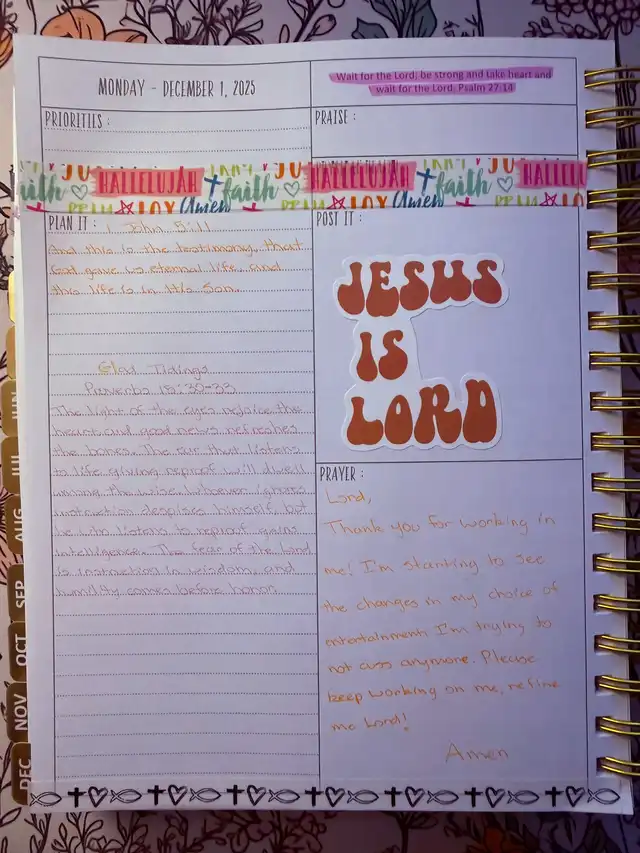 MONDAY - DECEMBER 1, 2025
Wait for the Lord; be strong and take heart and
wait for the Lord. Psalm 27:14
PRIORITIES :
PRAISE :
faith HALLELUJAH faith HALLELUJAH faith HALLELU
JOY Amen JOY Amen
PLAN IT :
1 John 5:11
And this is the testimony, that
God gave us eternal life, and
this life is in His Son.
Glad Tidings
Proverbs 15:30-33
The light of the eyes rejoice the
heart and good news refreshes
the bones. The ear that listens
to life giving reproof will dwell
among the wise. Whoever ignores
instruction despises himself, but
he who listens to reproof gains
intelligence. The fear of the Lord
is instruction in wisdom, and
humility comes before honor.
POST IT :
JESUS
IS
LORD
PRAYER :
Lord,
Thank you for working in
me! I'm starting to see
the changes in my choice of
entertainment. I'm trying to
not cuss anymore. Please
keep working on me, refine
me Lord!
Amen
JUN
JUL
AUG
SEP
OCT
NOV
DEC